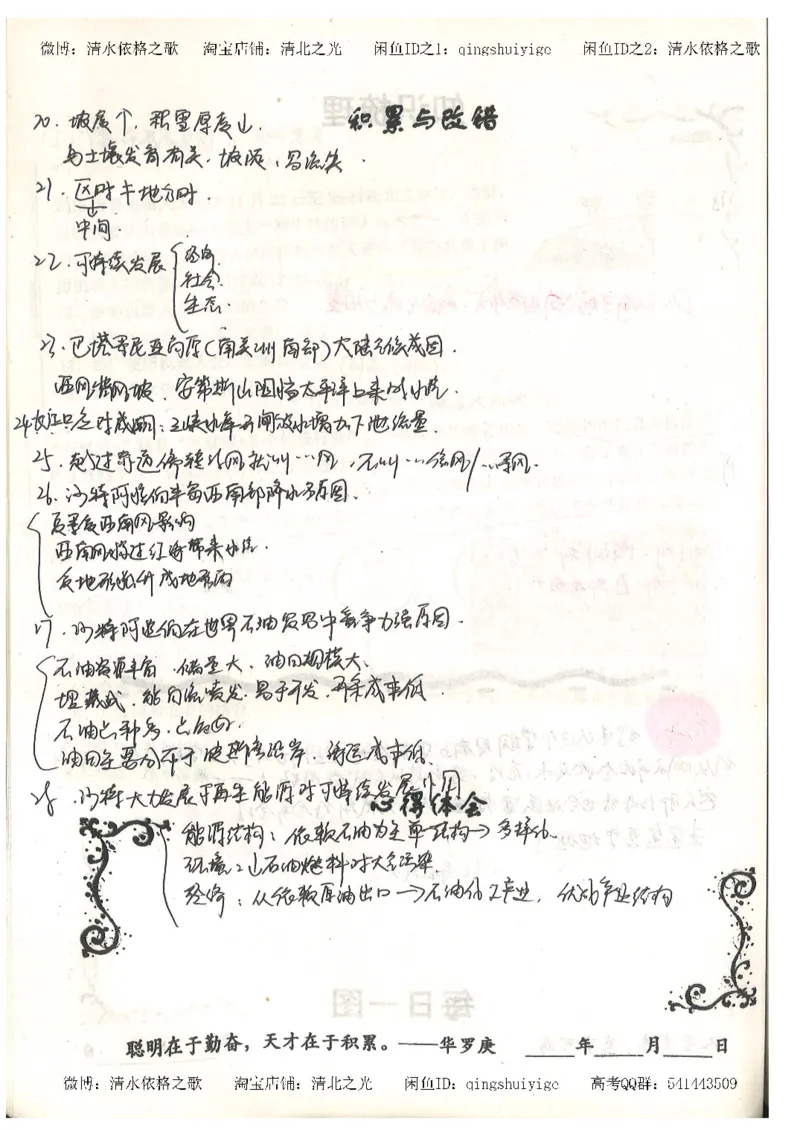 微博：清水依格之歌 淘宝店铺：清北之光 闲鱼ID之1：qingshuiyige 闲鱼ID之2：清水依格之歌
积累与改错
20. 坡度个，积雪厚度山.
与土壤发育有关，坡陡，易流失.
21. 区时十地方时.
中间
22. 可持续发展
经济.
社会.
生态.
23. 巴塔哥尼亚高原(南美洲南部)大陆
西风 风坡，安第斯山阻挡太平洋上来的水汽.
25. 越过赤道偏转
26. 沙特阿拉伯半岛西南部降水多原因.
夏季受西南风影响
西南风跨过红海带来水汽.
受地形抬升成地形雨
27. 沙特阿拉伯在世界石油贸易中竞争力强原因.
石油资源丰富，储量大、油田规模大、
埋藏浅，易于开发，开采成本低.
石油品种多，
油田主要分布于波斯湾沿岸，海运成本低.
28. 沙特大力发展可再生能源对可持续发展作用
心得体会
能源结构：依赖石油为主单一结构→多样化
环境：山石油燃料对大气污染
经济：从依赖原油出口→石油化工产业，优化产业结构
聪明在于勤奋，天才在于积累。——华罗庚 年 月 日
微博：清水依格之歌 淘宝店铺：清北之光 闲鱼ID：qingshuiyige 高考QQ群：541443509